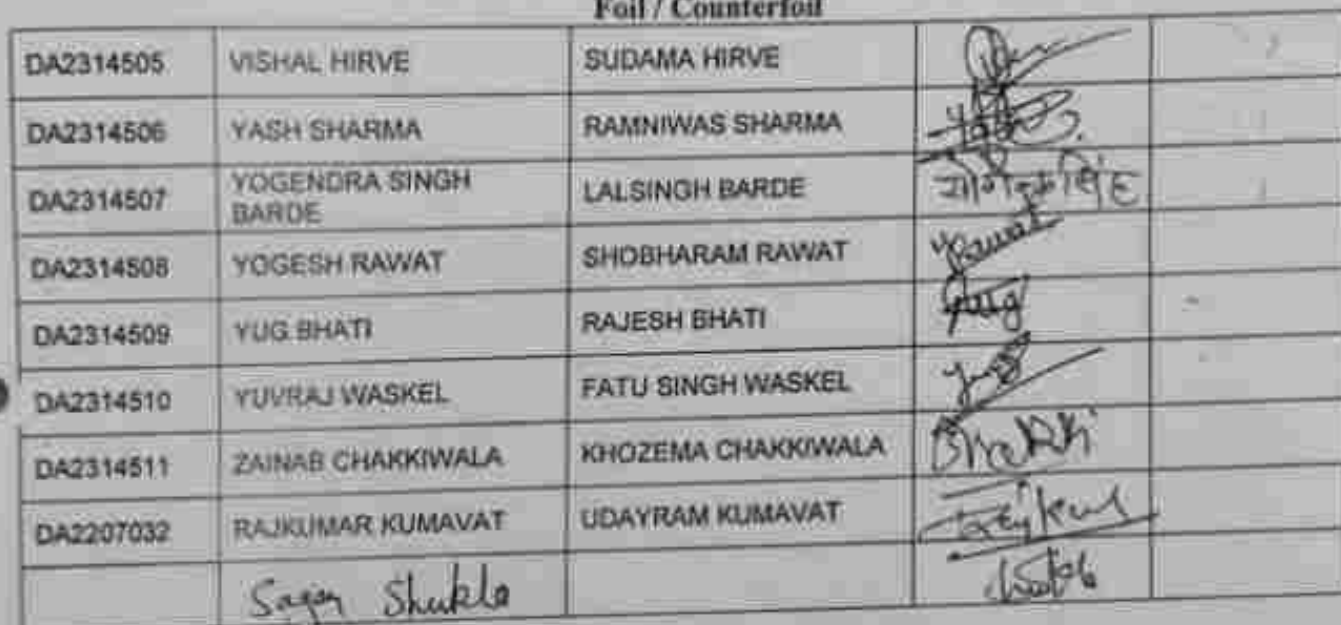 Foil / Counterfoil
DA2314505 VISHAL HIRVE SUDAMA HIRVE
DA2314506 YASH SHARMA RAMNIWAS SHARMA
DA2314507 YOGENDRA SINGH BARDE LALSINGH BARDE
DA2314508 YOGESH RAWAT SHOBHARAM RAWAT YRawat
DA2314509 YUG BHATI RAJESH BHATI Yug
DA2314510 YUVRAJ WASKEL FATU SINGH WASKEL
DA2314511 ZAINAB CHAKKIWALA KHOZEMA CHAKKIWALA
DA2207032 RAJKUMAR KUMAVAT UDAYRAM KUMAVAT
Shukla